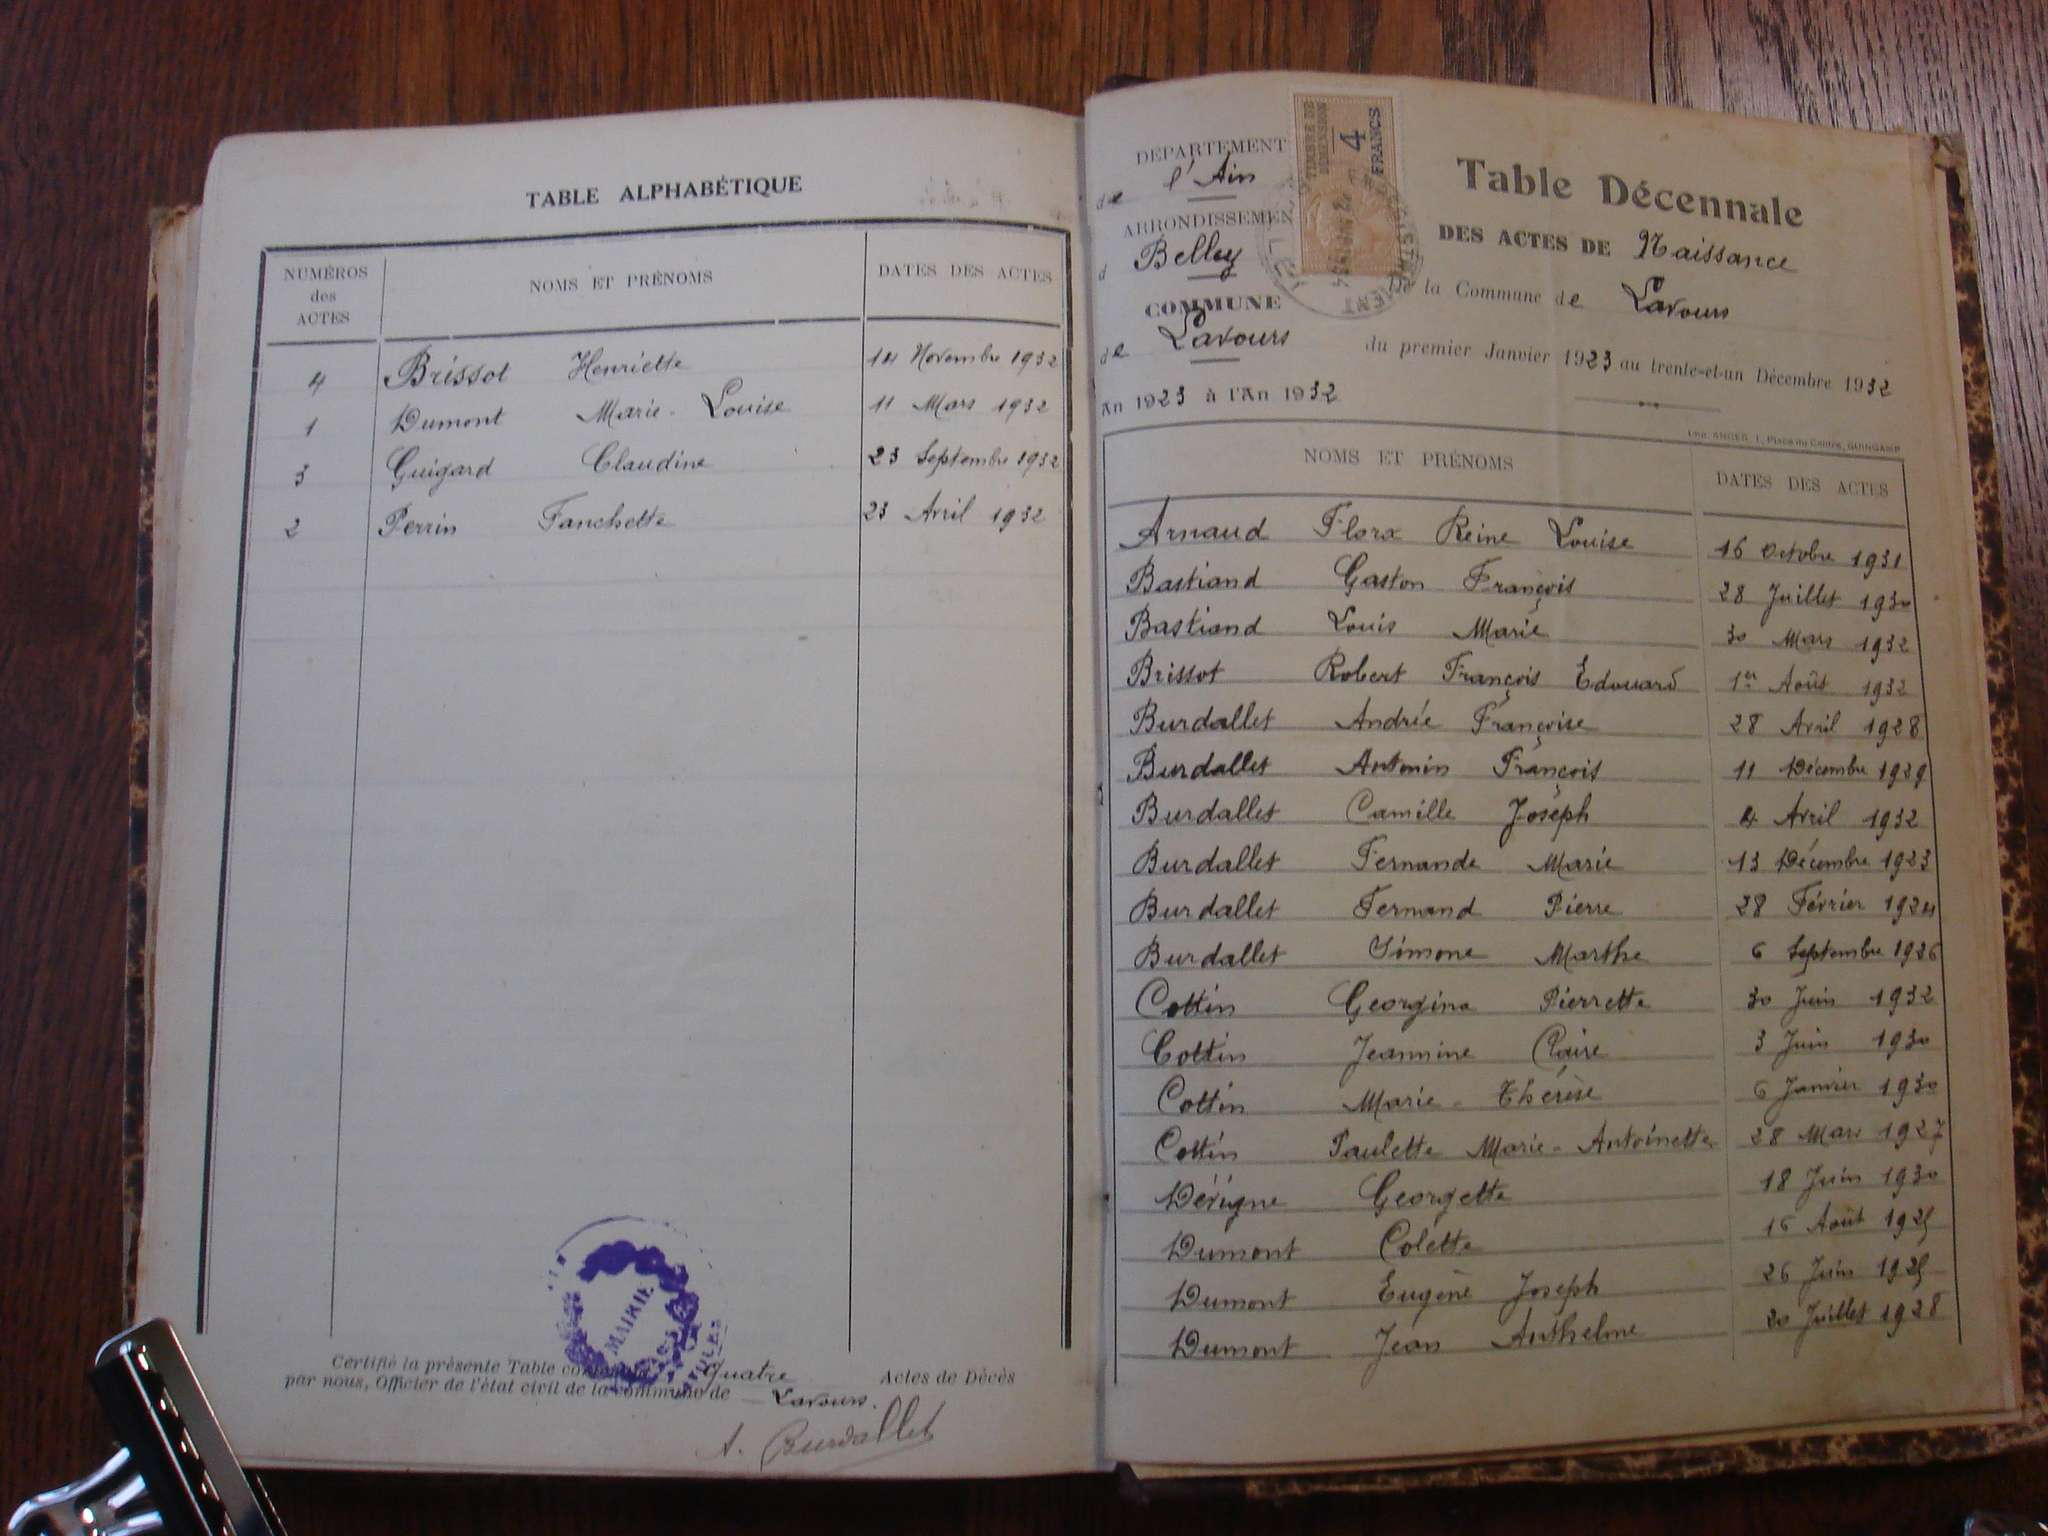 TABLE ALPHABÉTIQUE
NUMÉROS des ACTES NOMS ET PRÉNOMS DATES DES ACTES
4 Brissot Henriette 14 Novembre 1932
1 Dumont Marie-Louise 11 Mars 1932
3 Guigard Claudine 23 Septembre 1932
2 Perrin Fanchette 23 Avril 1932
MAIRIE
Certifié la présente Table Quatre Actes de Décès
par nous, Officier de l'état civil de la commune de Lavours.
A. Burdallet
DÉPARTEMENT
de l'Ain
ARRONDISSEMENT
d Belley
COMMUNE
de Lavours
An 1923 à l'An 1932
TIMBRE DE DIMENSION
4 FRANCS
Table Décennale
DES ACTES DE Naissance
De la Commune de Lavours
du premier Janvier 1923 au trente-et-un Décembre 1932
Imp. ANGER, 1, Place du Centre, GUINGAMP
NOMS ET PRÉNOMS DATES DES ACTES
Arnaud Flora Reine Louise 16 Octobre 1931
Bastiand Gaston François 28 Juillet 1930
Bastiand Louis Marie 30 Mars 1932
Brissot Robert François Edouard 1er Août 1932
Burdallet Andrée Françoise 28 Avril 1928
Burdallet Antonin François 11 Décembre 1929
Burdallet Camille Joseph 4 Avril 1932
Burdallet Fernande Marie 13 Décembre 1923
Burdallet Fernand Pierre 28 Février 1924
Burdallet Simone Marthe 6 Septembre 1926
Cottin Georgina Pierrette 30 Juin 1932
Cottin Jeannine Claire 3 Juin 1930
Cottin Marie-Thérèse 6 Janvier 1930
Cottin Paulette Marie-Antoinette 28 Mars 1927
Dérigne Georgette 18 Juin 1930
Dumont Colette 16 Août 1925
Dumont Eugène Joseph 26 Juin 1925
Dumont Jean Anthelme 20 Juillet 1928